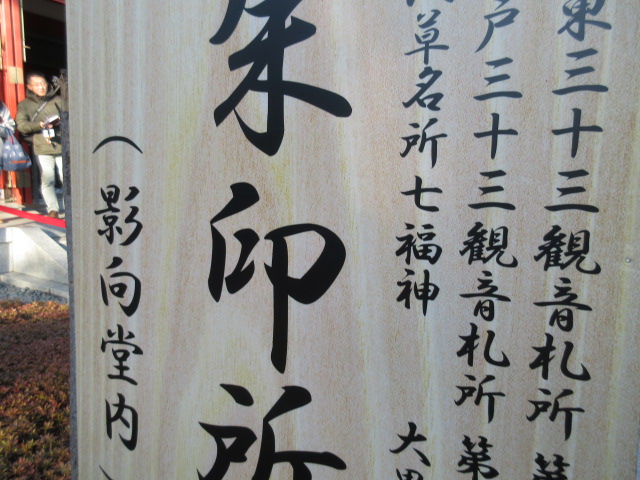 東三十三観音札所 第
戸三十三観音札所 第
草名所七福神 大黒
朱印所
（影向堂内）